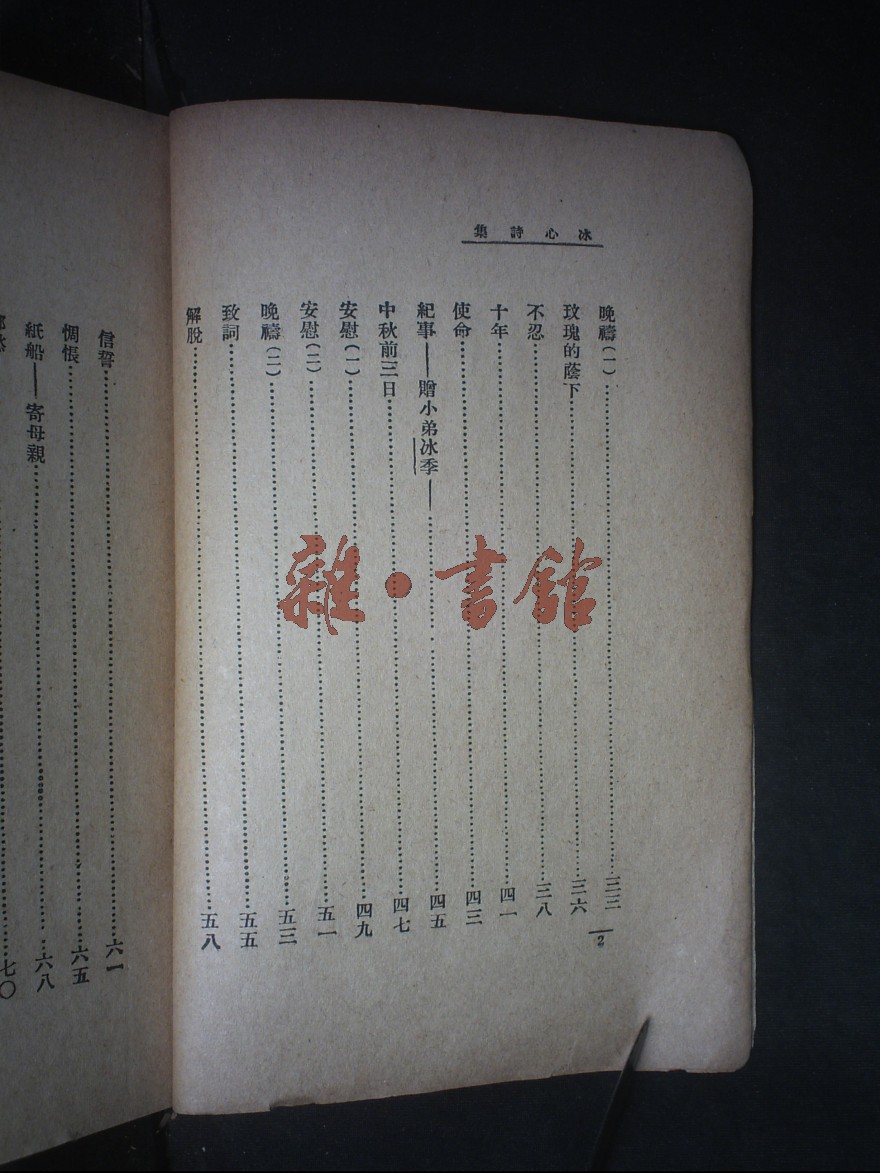 冰心詩集
晚禱(一)……三三
玫瑰的蔭下……三六
不忍……三八
十年……四一
使命……四三
紀事——贈小弟冰季——……四五
中秋前三日……四七
安慰(一)……四九
安慰(二)……五一
晚禱(二)……五三
致詞……五五
解脫……五八
2
信誓……六一
惆悵……六五
紙船——寄母親……六八
七〇
雜·書館